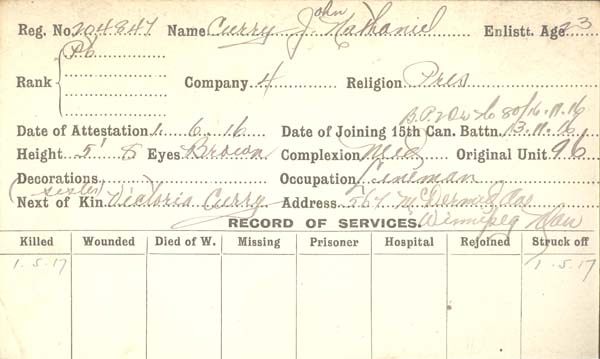 Reg. No. 204847 Name Curry John Nathaniel Enlistt. Age 23
Rank Pte Company 4 Religion Pres
B.P.2 O 80/16.11.16
Date of Attestation 1.6.16 Date of Joining 15th Can. Battn. 13.11.16
Height 5' 8 Eyes Brown Complexion Med Original Unit 96
Decorations Occupation Lineman
(sister)
Next of Kin Victoria Curry Address 567 McDermid Ave
RECORD OF SERVICES. Winnipeg Man
Killed Wounded Died of W. Missing Prisoner Hospital Rejoined Struck off
1.5.17 1.5.17